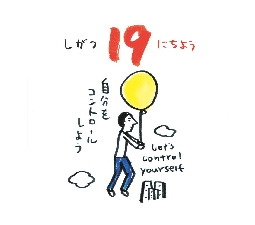 しがつ 19 にちよう
自分を
コントロール
しよう
Let's
control
yourself